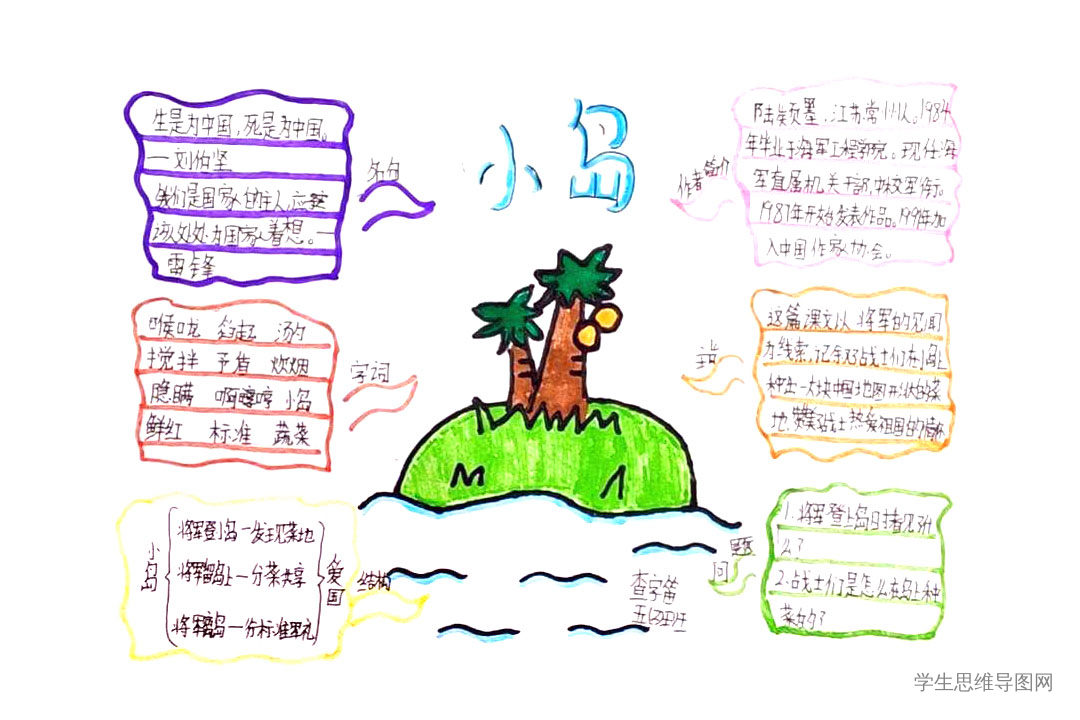 小岛
名句
生是为中国，死是为中国。
—刘伯坚
我们是国家的主人，应该
处处为国家着想。—
雷锋
字词
喉咙 汤勺
搅拌 予盾 炊烟
隐瞒 啊嚏 小岛
鲜红 标准 蔬菜
结构
小岛
将军登小岛—发现菜地
将军留岛上—分菜共享
将军离岛—分标准军礼
爱国
作者简介
陆颖墨，江苏常州人。1984
年毕业于海军工程学院。现任海
军直属机关干部，中校军衔。
1987年开始发表作品。1991年加
入中国作家协会。
这篇课文以将军的见闻
为线索，记叙了战士们在小岛上
种出一大块中国地图形状的菜
地，赞美了战士热爱祖国的情怀
问题
1.将军登上岛时看见什
么？
2.战士们是怎么在岛上种
菜的？
查字笛
五(3)班
学生思维导图网